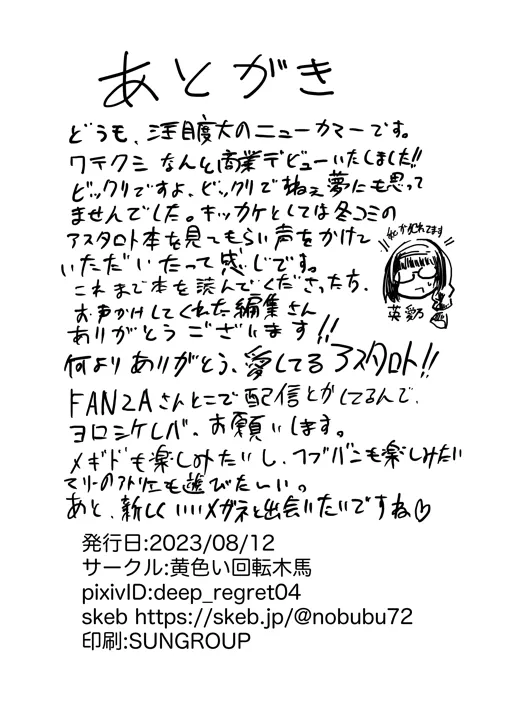 あとがき
どうも、注目度大のニューカマーです。
ワテクシ なんと商業デビューいたしました!!
ビックリですよ、ビックリでねぇ夢にも思って
ませんでした。キッカケとしては冬コミの
アスタロト本を見てもらい声をかけて
いただいたって感じです。
これまで本を読んでくださった方、
お声かけしてくれた編集さん
ありがとうございます!!
何よりありがとう、愛してるアスタロト!!
FANZAさんとこで配信とかしてるんで、
ヨロシケレバ、お願いします。
メギドも楽しみたいし、ラブバンも楽しみたい
マリーのアトリエも遊びたいい。
あと、新しくいいメガネと出会いたいですね♡
発行日:2023/08/12
サークル:黄色い回転木馬
pixivID:deep_regret04
skeb https://skeb.jp/@nobubu72
印刷:SUNGROUP